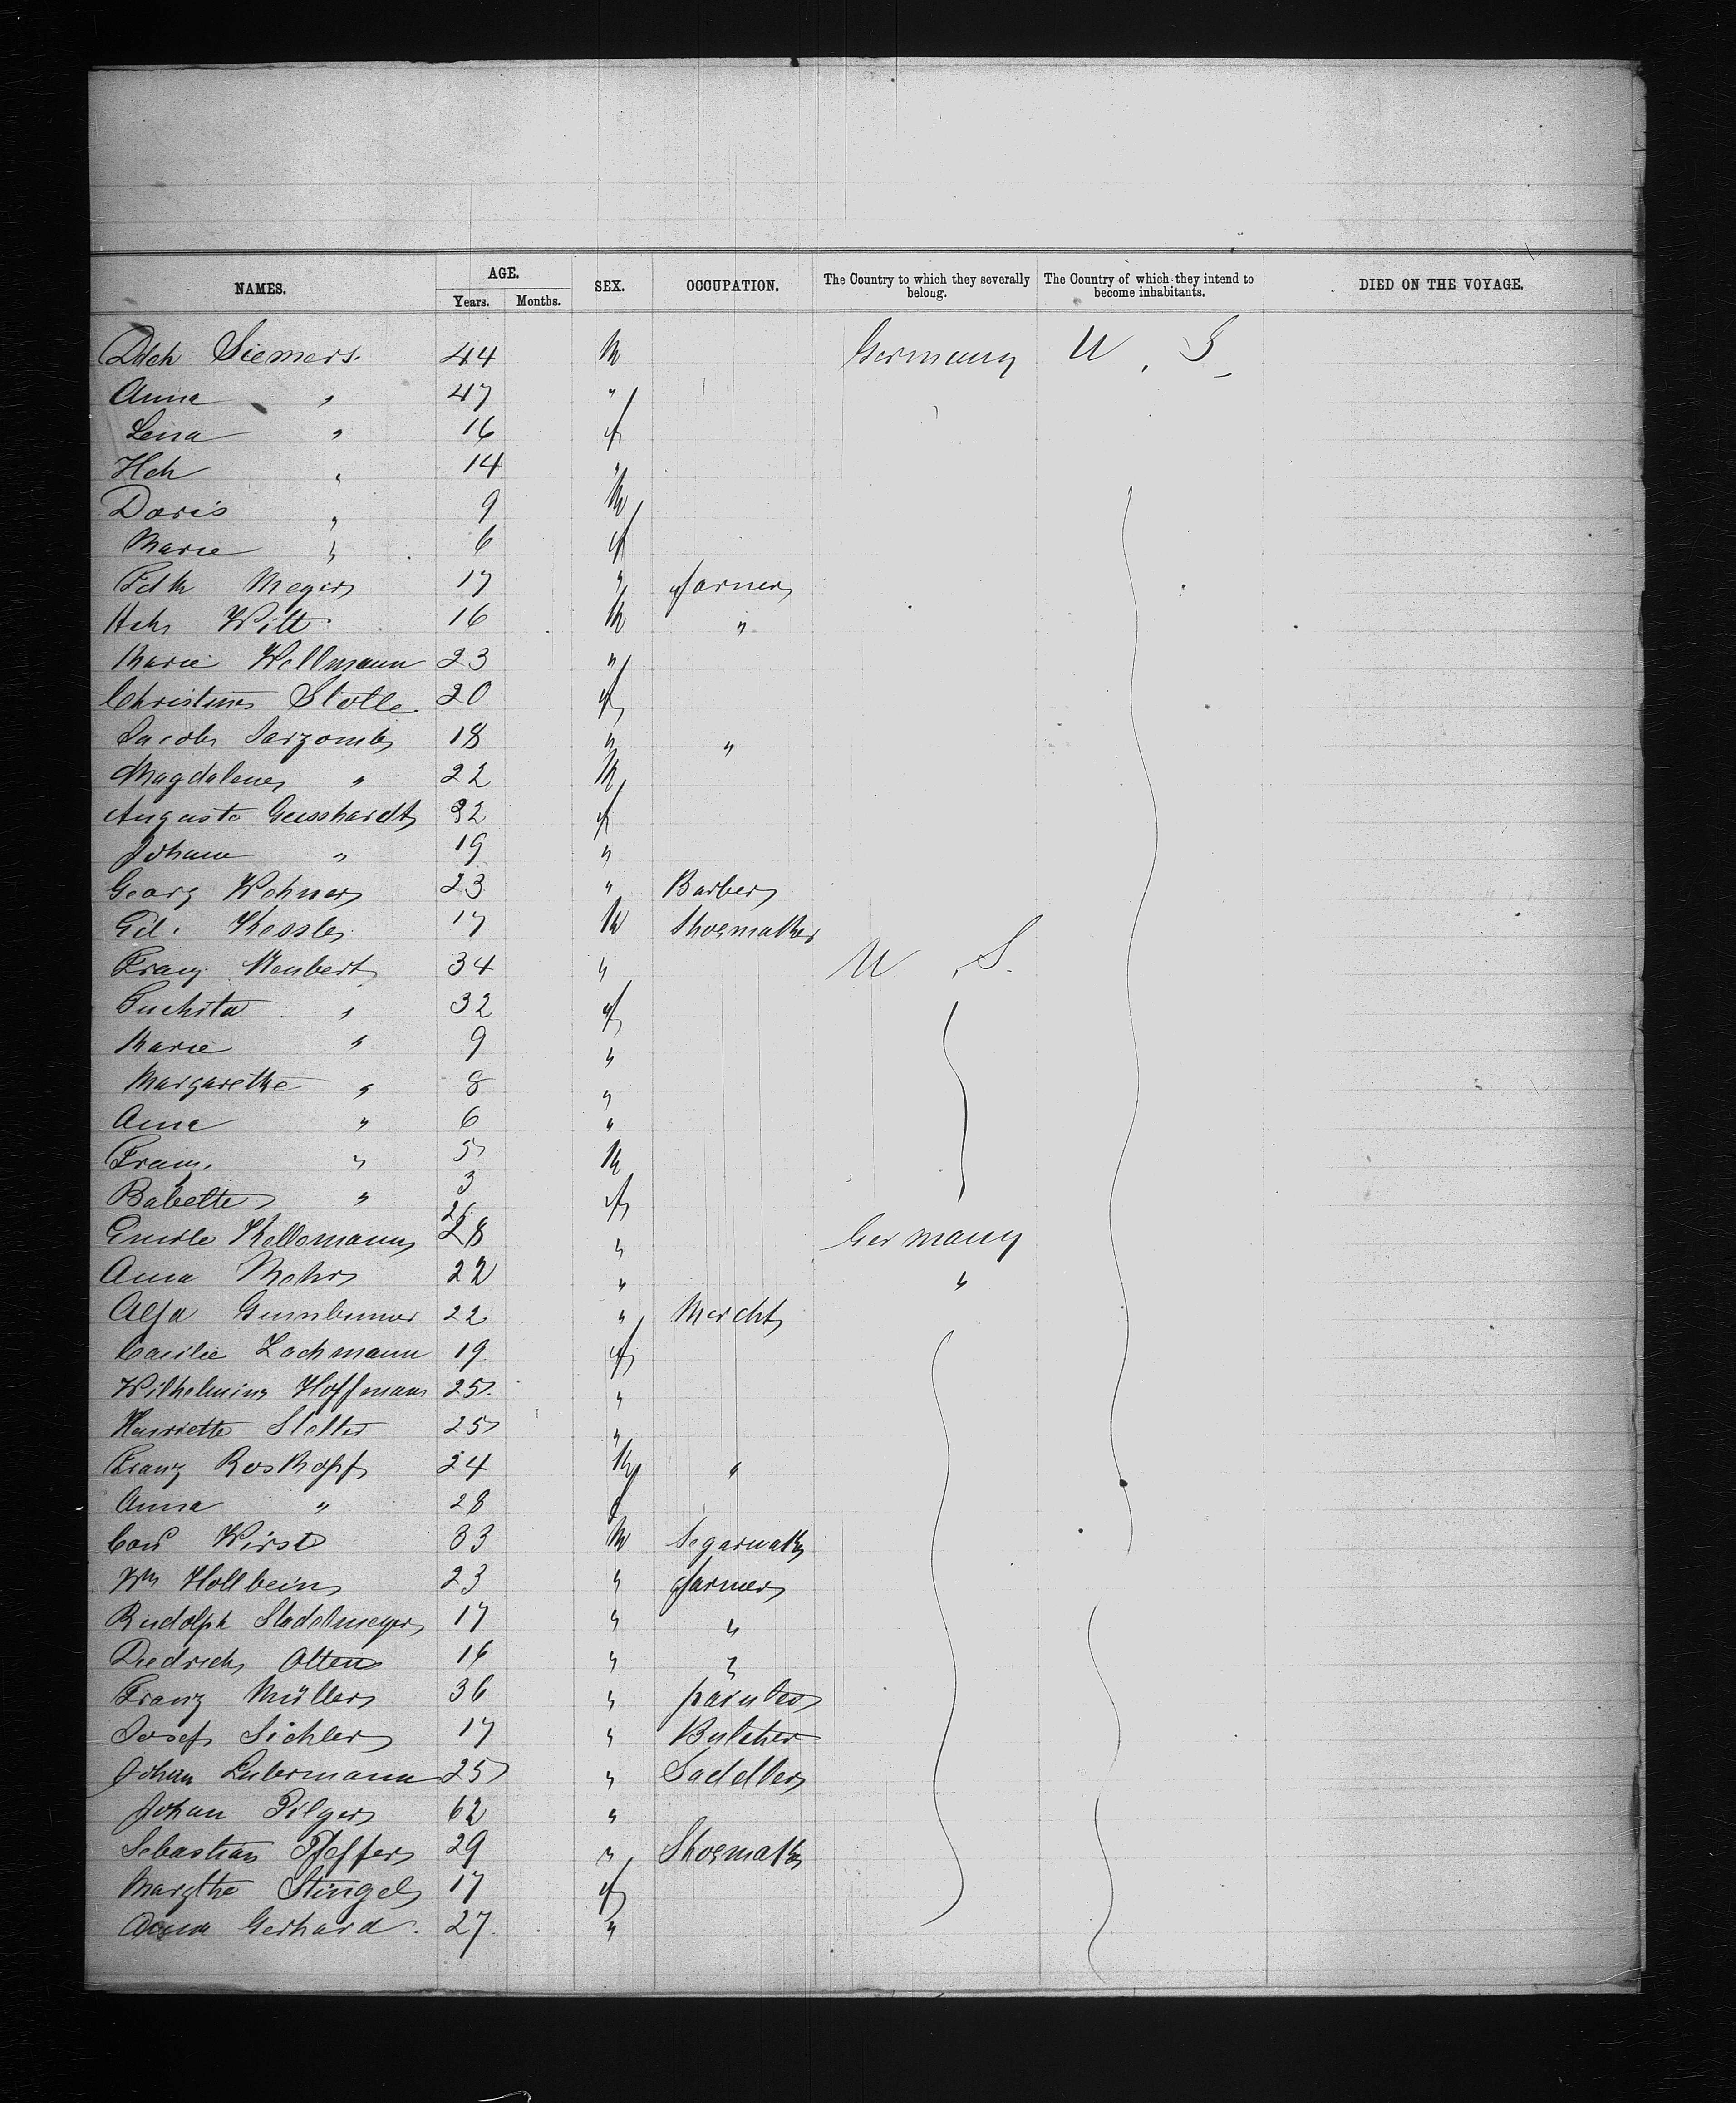 NAMES. AGE. Years. Months. SEX. OCCUPATION. The Country to which they severally belong. The Country of which they intend to become inhabitants. DIED ON THE VOYAGE.
Ddch Siemers. 44 M Germany U. S.
Anna " 47 "
Lena " 16 f
Hch " 14 "
Doris " 9 M
Marie " 6 f
Meyer 17 " farmer
Witt 16 M "
Marie Wellmann 23 "
Christine Stolle 20 f
Jacob 18 " "
Magdalene " 22 M
Auguste 32 f
Johann " 19 "
Georg Wehner 23 " Barber
Ed. Kessler 17 M Shoemaker
Franz Neubert 34 " U. S.
" 32 f
Marie " 9 "
Margarethe " 8 "
Anna " 6 "
Franz " 5 M
Babette " 3 f
26
Kellomann 28 " Germany
Anna Mohr 22 " "
22 " Mercht
Cacilie Lachmann 19 f
Wilhelmine Hoffmann 25 "
Henriette Stelter 25 "
Franz Roskopf 24 M "
Anna " 28 f
Wirst 33 M Segarmaker
Wm Hollbein 23 " farmer
Rudolph Stadelmeyer 17 " "
Diedrich Otten 16 " "
Franz Müller 36 " painter
Josef Sichler 17 " Butcher
Johan Lubermann 25 " Saddler
Johan Pilger 62 "
Sebastian Pfeffer 29 " Shoemaker
Margthe Stingel 17 f
Anna Gerhard. 27. "